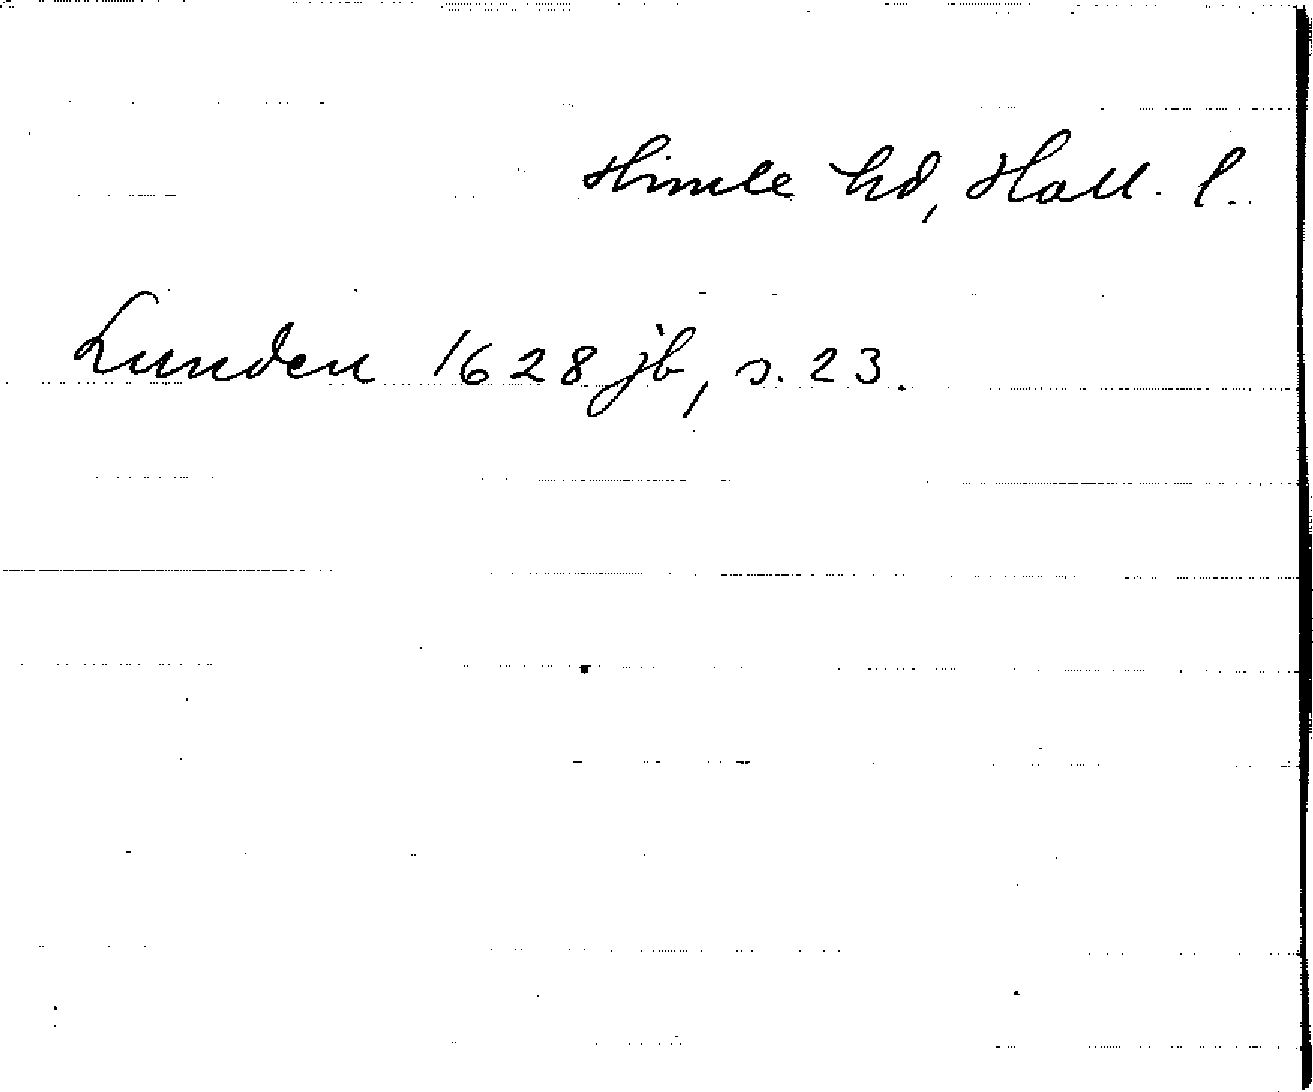 Himle hd, Hall. l.
Lunden 1628 jb, s. 23.